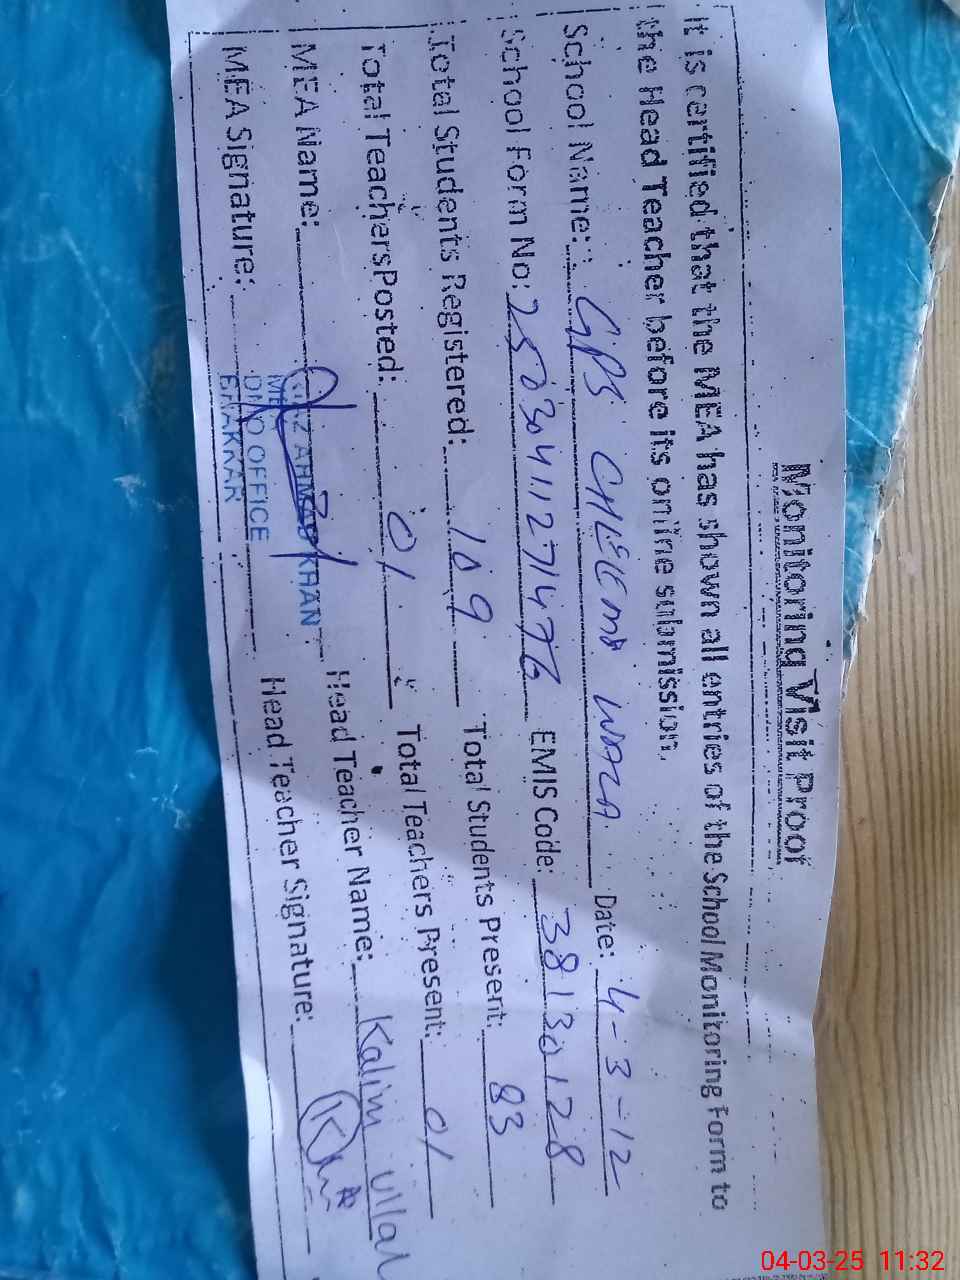 Monitoring Visit Proof
It is certified that the MEA has shown all entries of the School Monitoring Form to
the Head Teacher before its online submission.
School Name: GPS CHEEMA WAZA Date: 4-3-12
School Form No: EMIS Code: 38130128
Total Students Registered: 109 Total Students Present: 83
Total Teachers Posted: 01 Total Teachers Present: 01
MEA Name: AHMAD KHAN Head Teacher Name: Kalim Ullah
MEA Signature: Head Teacher Signature:
OFFICE
BHAKKAR
04-03-25 11:32